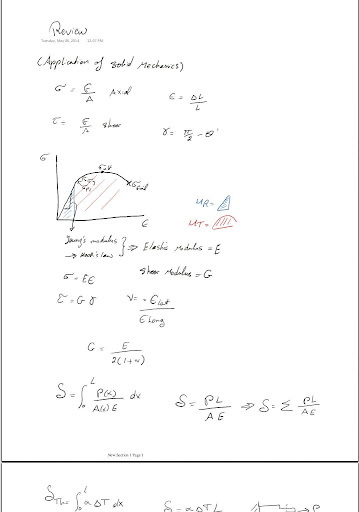 Review
Tuesday, May 06, 2014 12:07 PM
(Application of Solid Mechanics)
σ = F/A Axial ε = ΔL/L
τ = F/A shear γ = π/2 - θ'
σ
ε
u_R =
u_T =
Young's modulus
→ Hook's law } ⇒ Elastic Modulus = E
σ = Eε Shear Modulus = G
τ = Gγ ν = -ε_lat/ε_long
G = E/2(1+ν)
δ = ∫₀ᴸ P(x)/A(x)E dx δ = PL/AE ⇒ δ = Σ PL/AE
New Section 1 Page 1
δ_Th = ∫₀ᴸ α ΔT dx δ = α ΔT L P